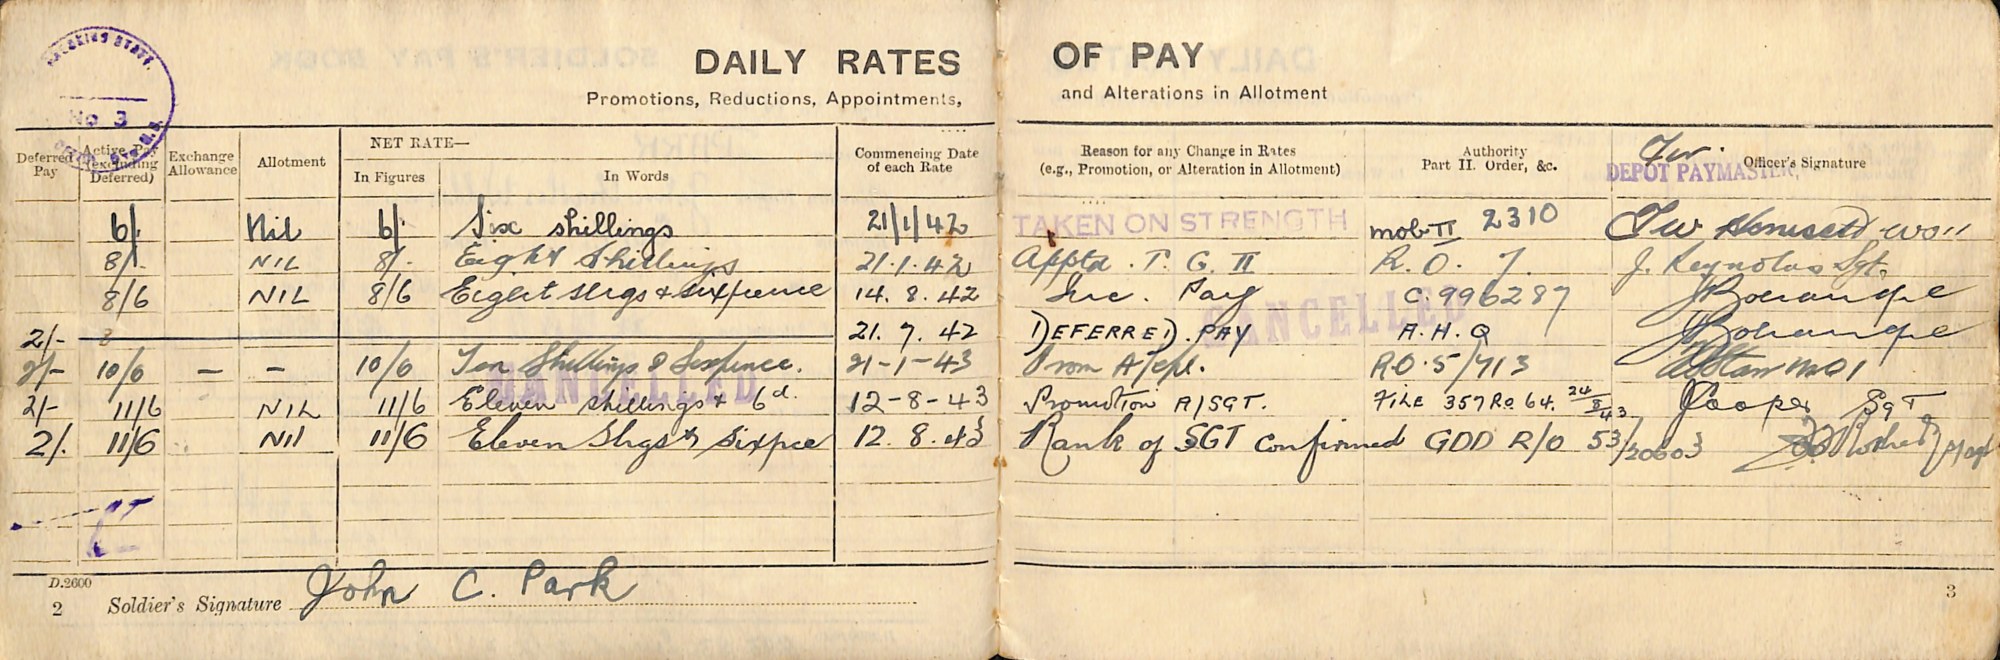 No 3
DAILY RATES OF PAY
Promotions, Reductions, Appointments, and Alterations in Allotment
Deferred Pay
Active Pay (excluding Deferred)
Exchange Allowance
Allotment
NET RATE—
In Figures
In Words
Commencing Date of each Rate
Reason for any Change in Rates (e.g., Promotion, or Alteration in Allotment)
Authority Part II. Order, &c.
DEPOT PAYMASTER,
Officer's Signature
6/- Nil 6/- Six shillings 21/1/42 TAKEN ON STRENGTH mob II 2310
8/- NIL 8/- Eight Shillings 21.1.42 Apptd. T. G. II R. O. 7. J. Reynolds Sgt.
8/6 NIL 8/6 Eight slrgs & sixpence 14.8.42 Inc. Pay C.996287
CANCELLED
2/- 21.7.42 DEFERRED PAY A.H.Q
2/- 10/6 – – 10/6 Ten Shillings & Sixpence. 21-1-43 Prom A/Cpl. RO.5/713
CANCELLED
2/- 11/6 NIL 11/6 Eleven shillings & 6d. 12-8-43 Promotion A/SGT. FILE 357 Ro 64. 24/8/43 Cooper SGT
2/- 11/6 Nil 11/6 Eleven Slrgs & Sixpce 12.8.43 Rank of SGT Confirmed GDD R/O 53/20603
D.2600
2 Soldier's Signature John C. Park
3